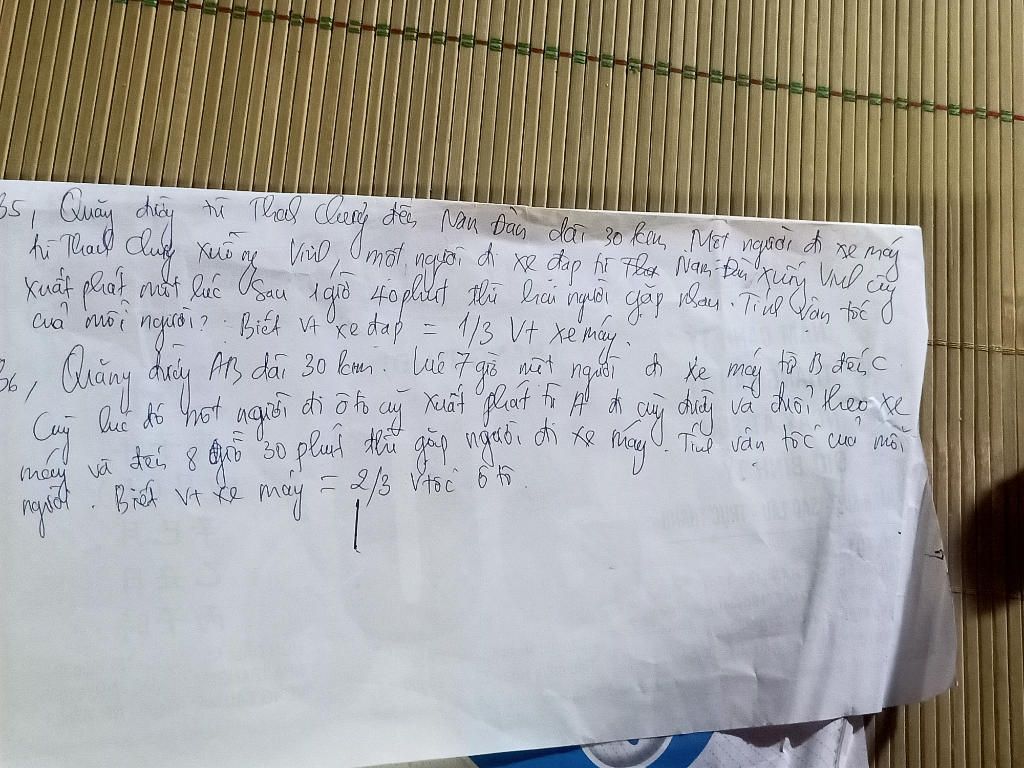 B5, Quãng đường từ Thanh Chương đến Nam Đàn dài 30 km. Một người đi xe máy
từ Thanh Chương xuống Vinh, một người đi xe đạp từ Nam Đàn xuống Vinh cùng
xuất phát một lúc. Sau 1 giờ 40 phút thì hai người gặp nhau. Tính vận tốc
của mỗi người? Biết Vt xe đạp = 1/3 Vt xe máy.
B6, Quãng đường AB dài 30 km. Lúc 7 giờ một người đi xe máy từ B đến C.
Cùng lúc đó một người đi ô tô cùng xuất phát từ A đi cùng đường và đuổi theo xe
máy và đến 8 giờ 30 phút thì gặp người đi xe máy. Tính vận tốc của mỗi
người. Biết Vt xe máy = 2/3 Vtốc ô tô.